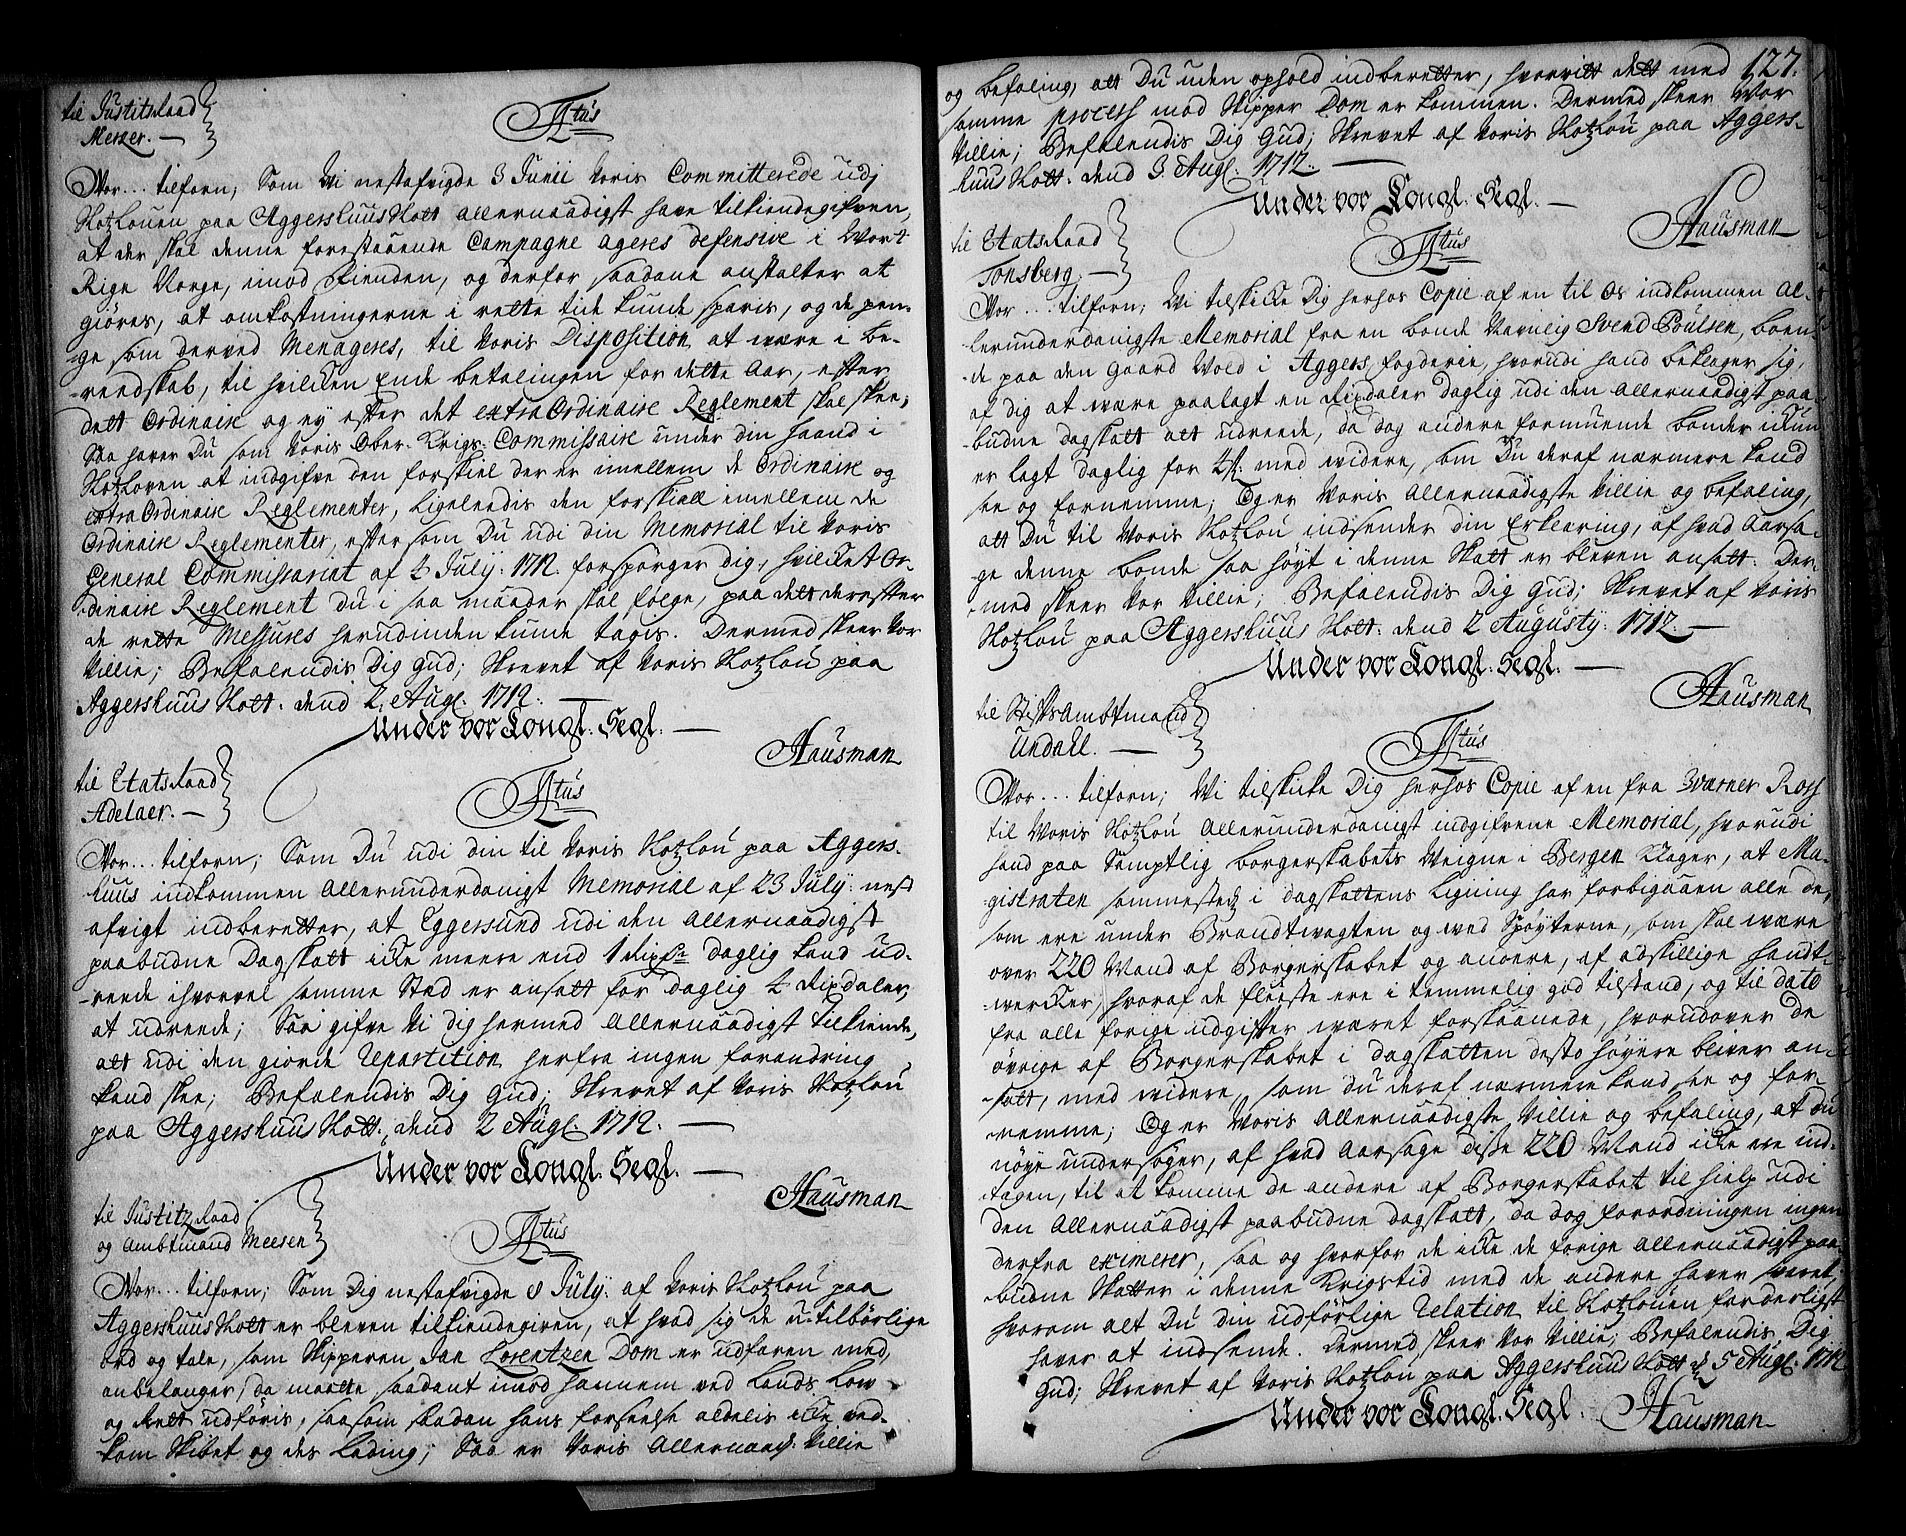 til Justitsraad
Merzer.
F4tus
Vor... tilforn; Som Wi nestafvigde 3 Junii Voris Committerede udj
Slotzlouen paa Aggershuus Slott allernaadigst have tilkiendegifven,
at der skal denne forestaaende Campagne ageres defensive i Wort
Rige Norge, imod Fienden, og derfor saadane anstalter at
giöres, at omkostningerne i rette tide kunde sparis, og de pen-
ge som derved Menageres, til Voris Disposition at være i be-
reedskab, til hvilcken Ende betalingen for dette Aar, efter
dett Ordinaire og ey efter det extra Ordinaire Reglement skal skee;
Saa haver Du som Voris Ober-Krigs-Commissaire under din haand i
Slotzloven at indgifve den forskiel der er imellem de Ordinaire og
extra Ordinaire Reglementer, ligeleedis den forskiell imellem de
Ordinaire Reglementer, efter som Du udi din Memorial til Voris
General Commissariat af 2 July: 1712. forspörger dig, hvilcket Or-
dinaire Reglement du i saa maader skal fölge, paa dett derefter
de rette Messures herudinden kunde tagis. Dermed skeer Vor
Villie; Befalendis Dig Gud; Skrevet af Voris Slotzlou paa
Aggershuus Slott. dend 2. Augl. 1712.
Under vor Kongl. Segl.
Hausman
til Etatsraad
Adelaer.
F4tus
Vor... tilforn; Som Du udi din til Voris Slotzlou paa Aggers-
huus indkommen Allerunderdanigst Memorial af 23 July: nest
afvigt indberetter, at Eggersund udi den allernaadigst
paabudne Dagskatt icke meere end 1 Rixdr. daglig kand ud-
reede ihvorvel samme Stad er ansatt for daglig 2 Rixdaler,
at udreede; Saa gifve Vi dig hermed Allernaadigst tilkiende,
att udi den giorde Repartition herfra ingen forandring
kand skee; Befalendis Dig Gud; Skrevet af Voris Slotzlou
paa Aggershuus Slott. dend 2 Augl. 1712.
Under vor Kongl. Segl.
Hausman
til Justitz Raad
og Ambtmand Meesen
F4tus
Vor... tilforn; Som Dig nestafvigde 8 July: af Voris Slotzlou paa
Aggershuus Slott er bleven tilkiendegiven, at hvad sig de u-tilbörlige
ord og tale, som Skipperen Jan Lorentzen Dom er udfaren med,
anbelanger, da maatte saadant imod hannem ved Lands Low
og Rett udföris, saasom saadan hans forseelse aldelis icke ved-
kom Skibet og des Lading; Saa er Voris Allernaad: Villie
127.
og befaling, att Du uden ophold indberetter, hvorvitt dett med
samme process mod Skipper Dom er kommen. Dermed skeer Vor
Villie; Befalendis Dig Gud; Skrevet af Voris Slotzlou paa Aggers-
huus Slott. dend 3. Augl. 1712.
Under vor Kongl. Segl.
Hausman
til Etatsraad
Tonsberg.
F4tus
Vor... tilforn; Wi tilskicke Dig herhos Copie af en til Os indkommen al-
lerunderdanigste Memorial fra en bonde Navnlig Svend Poulsen, boen-
de paa den Gaard Wold i Aggers, fogderie, hvorudi hand beklager sig,
af dig at være paalagt en Rixdaler daglig udi den allernaadigst paa-
budne dagskatt att udreede, da dog andere formuende bonder ickun
er lagt daglig for 4 s. med widere, som Du deraf nærmere kand
see og fornemme; Og er Voris Allernaadigste Villie og befaling,
att Du til Voris Slotzlou indsender din Erklæring, af hvad Aarsa-
ge denne bonde saa höyt i denne Skatt er bleven ansatt. Der-
med skeer Vor Villie; Befalendis Dig Gud; Skrevet af Voris
Slotzlou paa Aggershuus Slott: dend 2 Augusty: 1712.
Under vor Kongl. Segl.
Hausman
til StiftsAmbtmand
Undall.
F4tus
Vor... tilforn; Wi tilskicke Dig herhos Copie af en fra Warner Ross
til Voris Slotzlou Allerunderdanigst indgifvene Memorial, hvorudi
hand paa Samptlig borgerskabets Weigne i Bergen klager, at Ma-
gistraten sammestedz i dagskattens Ligning har forbigaaen alle de,
som ere under Brandtwagten og wed Spöyterne, som skal være
over 220 Mand af Borgerskabet og andere, af adskillige handt-
wercker, hvoraf de fleeste ere i temmelig god tilstand, og til dato
fra alle forige udgifter været forskaanede, hvorudover de
övrige af Borgerskabet i dagskatten desto höyere bliver an-
satt, med widere, som du deraf nærmere kand see og for-
nemme; Og er Voris Allernaadigste Villie og befaling, at du
nöye undersöger, af hvad Aarsage disse 220 Mand icke ere ind-
tagen, til at komme de andere af Borgerskabet til hielp udi
den Allernaadigst paabudne dagskatt, da dog forordningen ingen
derfra eximerer, saa og hvorfor de icke de forige allernaadigst paa-
budne Skatter i denne Krigstid med de andere haver svaret,
hvorom alt Du din udförlige Relation til Slotzlouen forderligst
haver at indsende. Dermed skeer Vor Villie; Befalendis Dig
Gud; Skrevet af Voris Slotzlou paa Aggershuus Slott d. 5 Augl. 1712
Under vor Kongl. Segl.
Hausman